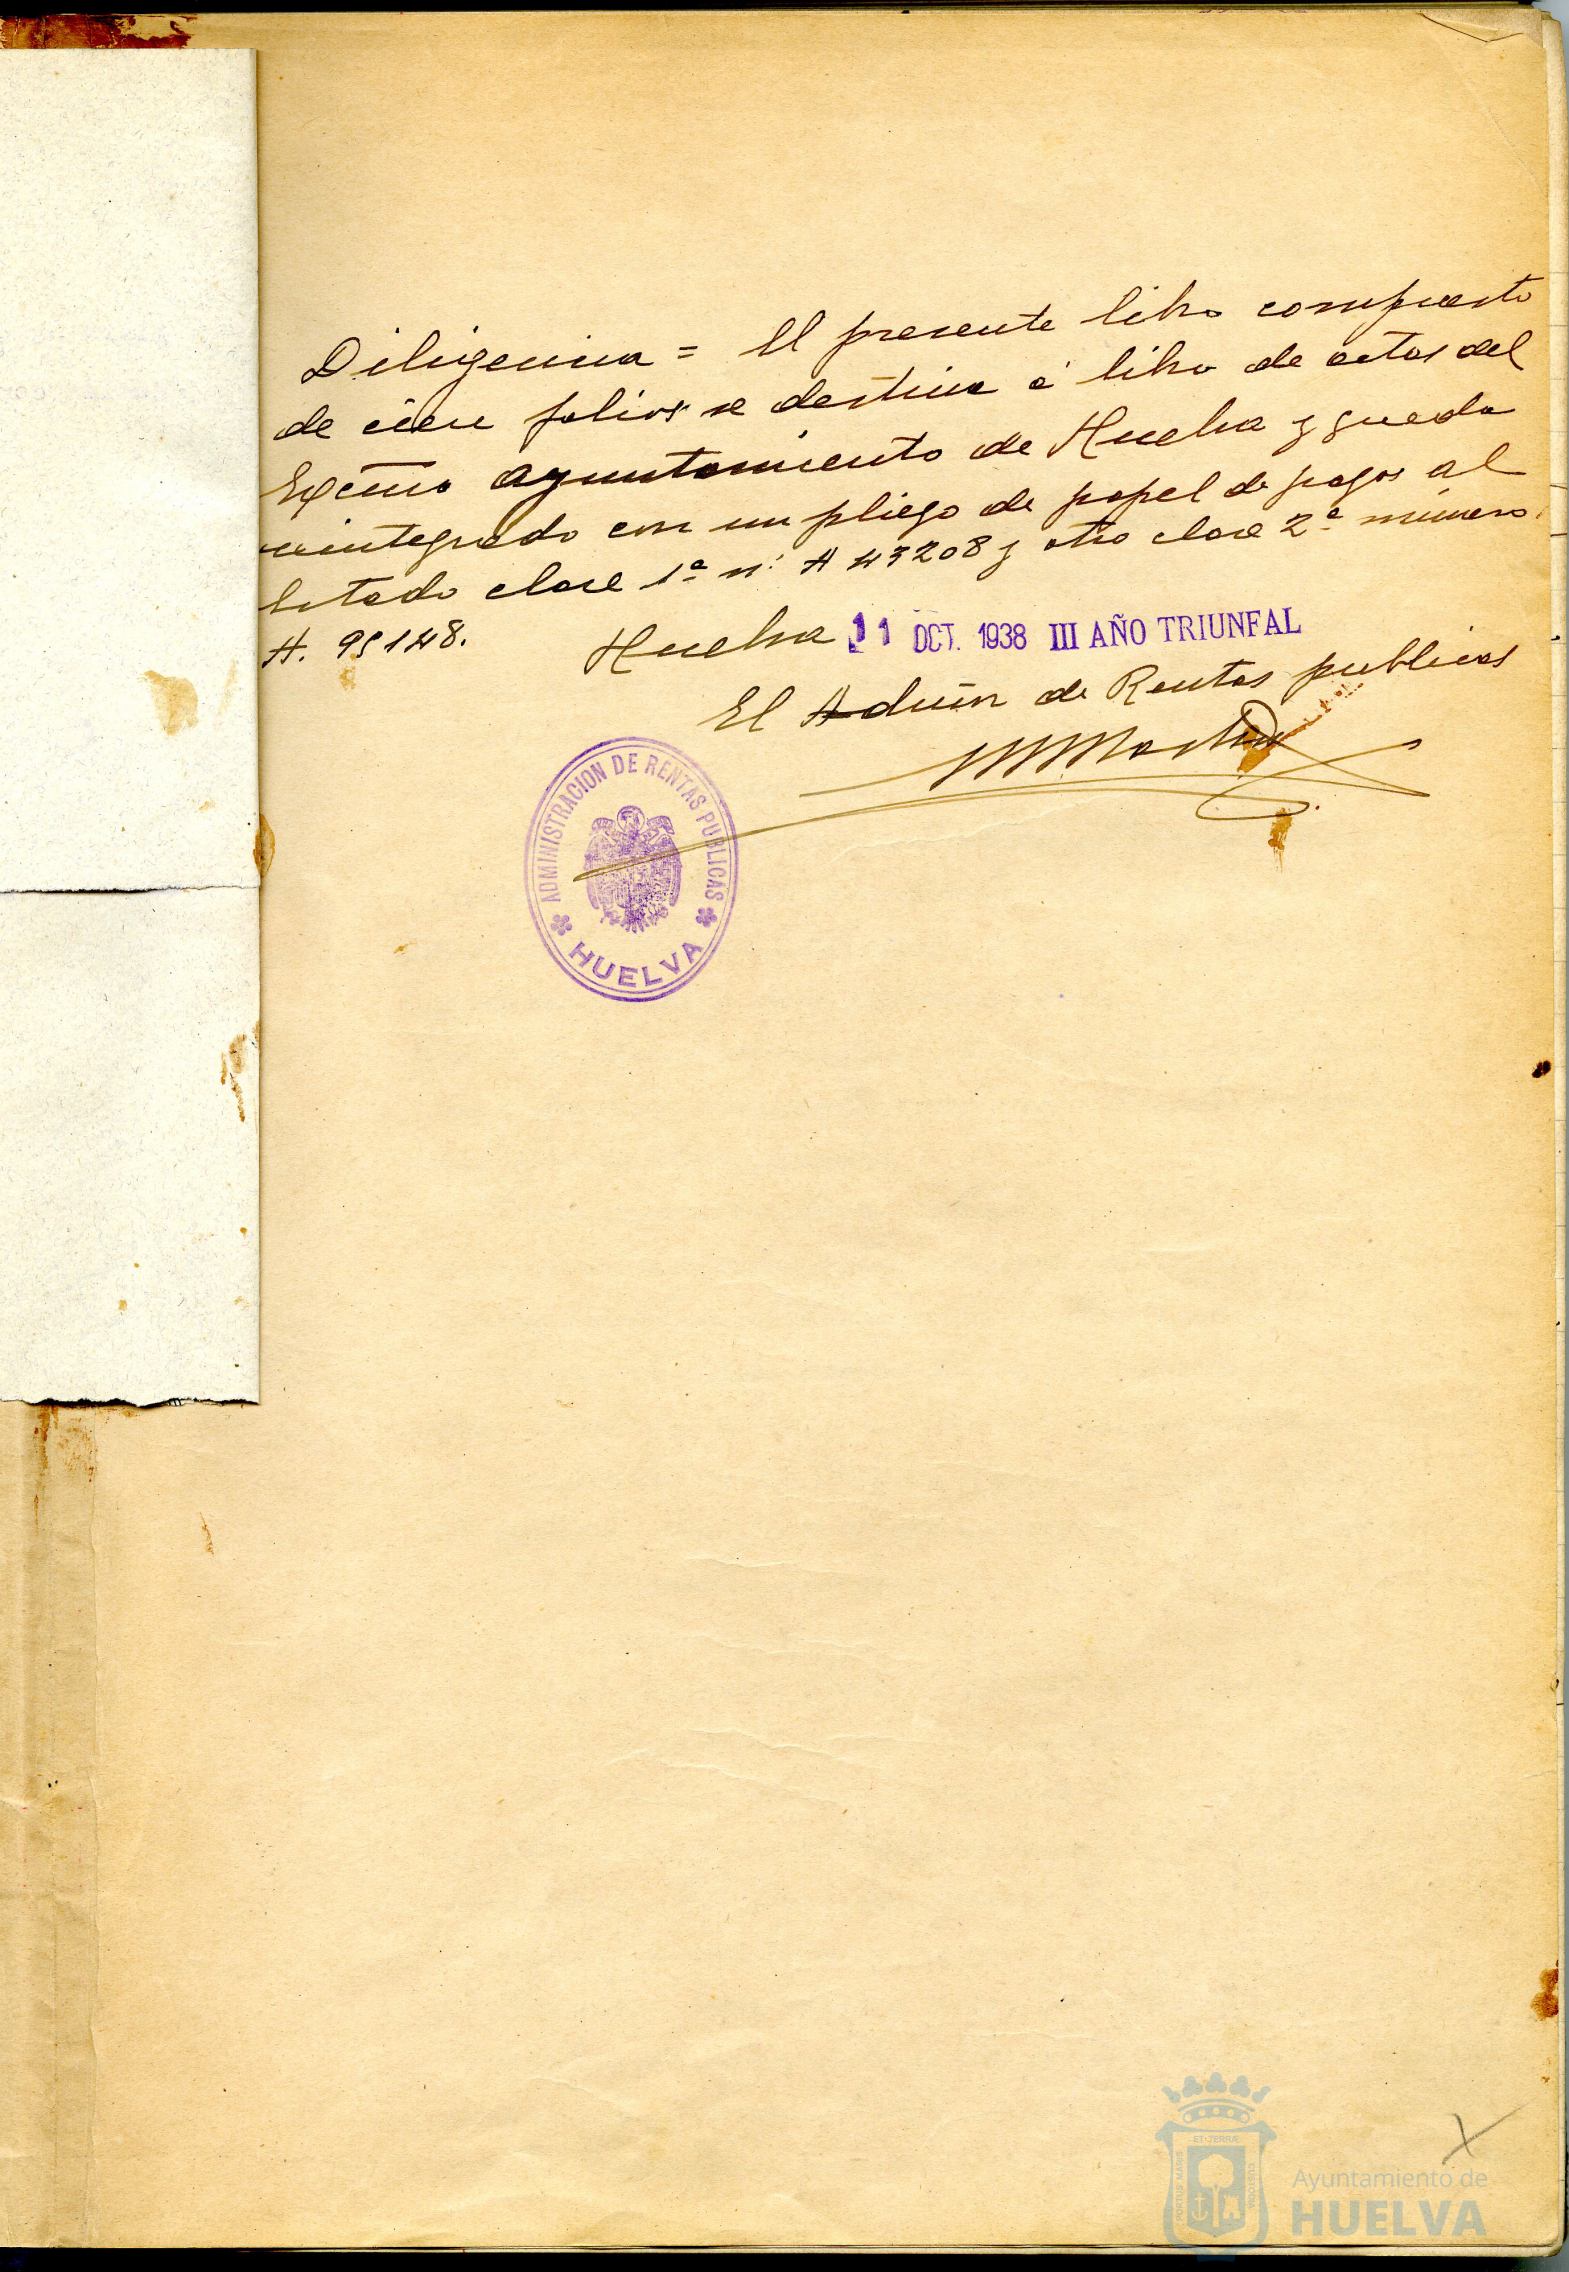 Diligencia = El presente libro compuesto
de cien folios se destina á libro de actas del
Excmo Ayuntamiento de Huelva y queda
reintegrado con un pliego de papel de pagos al
Estado clase 1ª nº A 43208 y otro clase 2ª número
A. 95148.
Huelva 11 OCT. 1938 III AÑO TRIUNFAL
El Admón de Rentas publicas
M Martin
ADMINISTRACION DE RENTAS PUBLICAS
HUELVA
ET TERRÆ
PORTUS MARIS
CUSTODIA
Ayuntamiento de
HUELVA